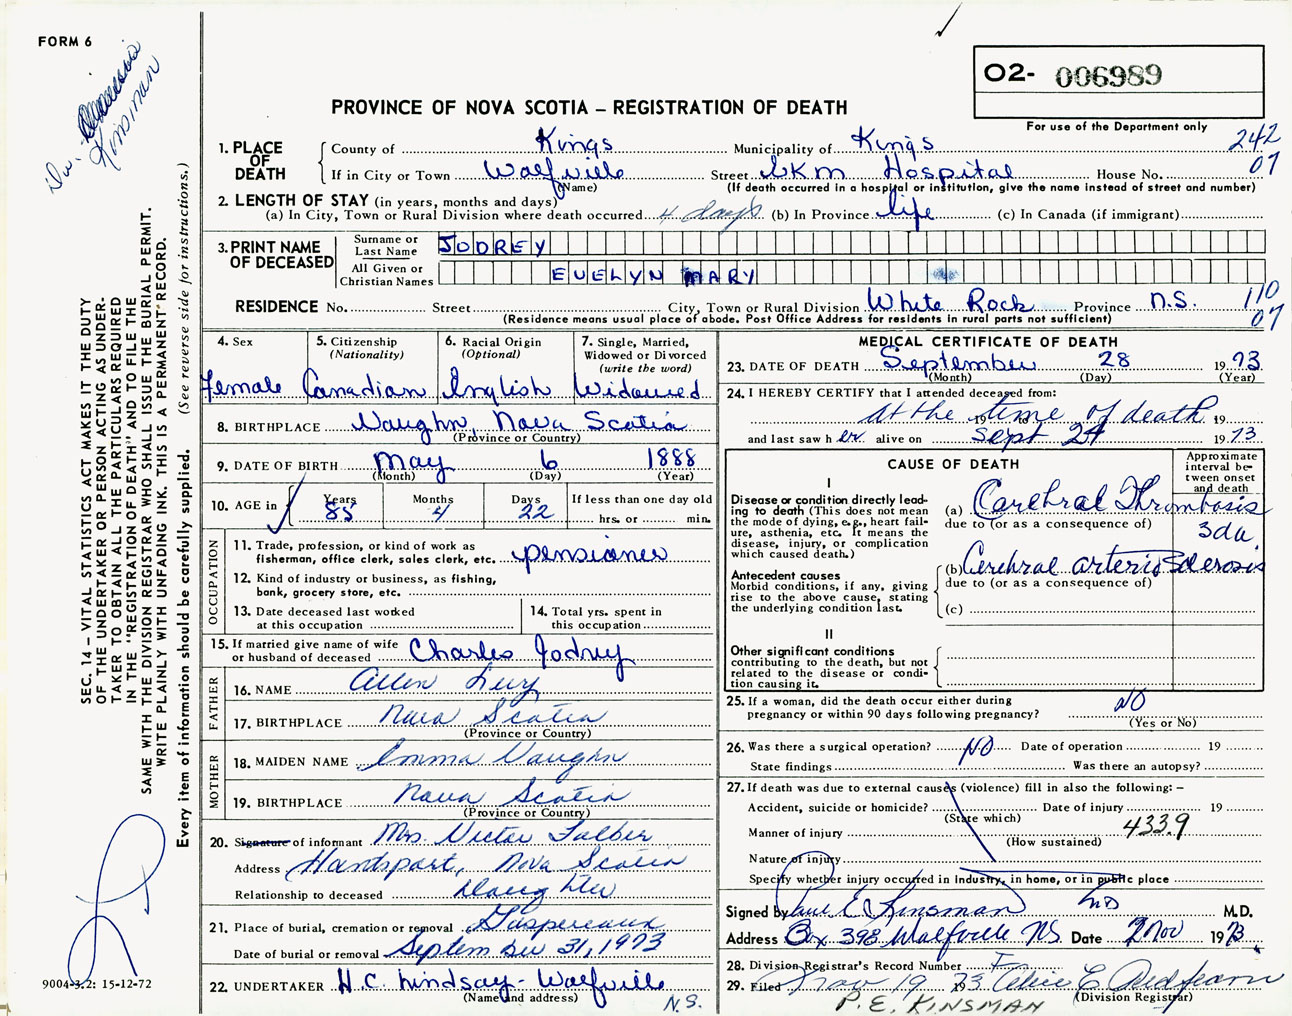 FORM 6
Dr. Kinsman
O2- 006989
For use of the Department only
PROVINCE OF NOVA SCOTIA – REGISTRATION OF DEATH
242
07
1. PLACE OF DEATH
County of Kings Municipality of Kings
If in City or Town Wolfville Street EKM Hospital House No.
(Name) (If death occurred in a hospital or institution, give the name instead of street and number)
2. LENGTH OF STAY (in years, months and days)
(a) In City, Town or Rural Division where death occurred 4 days (b) In Province life (c) In Canada (if immigrant)
3. PRINT NAME OF DECEASED
Surname or Last Name JODREY
All Given or Christian Names EVELYN MARY
RESIDENCE No. Street City, Town or Rural Division White Rock Province N.S. 110
07
(Residence means usual place of abode. Post Office Address for residents in rural parts not sufficient)
4. Sex Female
5. Citizenship (Nationality) Canadian
6. Racial Origin (Optional) English
7. Single, Married, Widowed or Divorced (write the word) Widowed
8. BIRTHPLACE Vaughn, Nova Scotia
(Province or Country)
9. DATE OF BIRTH May 6 1888
(Month) (Day) (Year)
10. AGE in Years 85 Months 4 Days 22 If less than one day old hrs. or min.
OCCUPATION
11. Trade, profession, or kind of work as fisherman, office clerk, sales clerk, etc. pensioner
12. Kind of industry or business, as fishing, bank, grocery store, etc.
13. Date deceased last worked at this occupation
14. Total yrs. spent in this occupation
15. If married give name of wife or husband of deceased Charles Jodrey
FATHER
16. NAME Allen Levy
17. BIRTHPLACE Nova Scotia
(Province or Country)
MOTHER
18. MAIDEN NAME Emma Vaughn
19. BIRTHPLACE Nova Scotia
(Province or Country)
20. Signature of informant Mrs. Victor
Address Hantsport, Nova Scotia
Relationship to deceased Daughter
21. Place of burial, cremation or removal Gaspereaux
Date of burial or removal September 31, 1973
22. UNDERTAKER H.C. Lindsay - Wolfville N.S.
(Name and address)
MEDICAL CERTIFICATE OF DEATH
23. DATE OF DEATH September 28 1973
(Month) (Day) (Year)
24. I HEREBY CERTIFY that I attended deceased from:
At the time of death 19 19
and last saw her alive on Sept 1973
CAUSE OF DEATH
Approximate interval between onset and death
I
Disease or condition directly leading to death (This does not mean the mode of dying, e.g., heart failure, asthenia, etc. It means the disease, injury, or complication which caused death.)
(a) Cerebral Thrombosis
due to (or as a consequence of) 3da
Antecedent causes
Morbid conditions, if any, giving rise to the above cause, stating the underlying condition last.
(b) Cerebral arteriosclerosis
due to (or as a consequence of)
(c)
II
Other significant conditions contributing to the death, but not related to the disease or condition causing it.
25. If a woman, did the death occur either during pregnancy or within 90 days following pregnancy? NO
(Yes or No)
26. Was there a surgical operation? NO Date of operation 19
State findings Was there an autopsy?
27. If death was due to external causes (violence) fill in also the following: –
Accident, suicide or homicide? Date of injury 19
(State which)
Manner of injury 433.9
(How sustained)
Nature of injury
Specify whether injury occurred in Industry, in home, or in public place
Signed by Paul E Kinsman MD M.D.
Address Box 398 Wolfville NS Date 2 Nov 1973
28. Division Registrar's Record Number
29. Filed Nov 19 1973
(Division Registrar)
P. E. KINSMAN
SEC. 14 – VITAL STATISTICS ACT MAKES IT THE DUTY
OF THE UNDERTAKER OR PERSON ACTING AS UNDERTAKER TO OBTAIN ALL THE PARTICULARS REQUIRED
IN THE "REGISTRATION OF DEATH" AND TO FILE THE
SAME WITH THE DIVISION REGISTRAR WHO SHALL ISSUE THE BURIAL PERMIT.
WRITE PLAINLY WITH UNFADING INK. THIS IS A PERMANENT RECORD.
Every item of information should be carefully supplied. (See reverse side for instructions.)
9004-3.2: 15-12-72